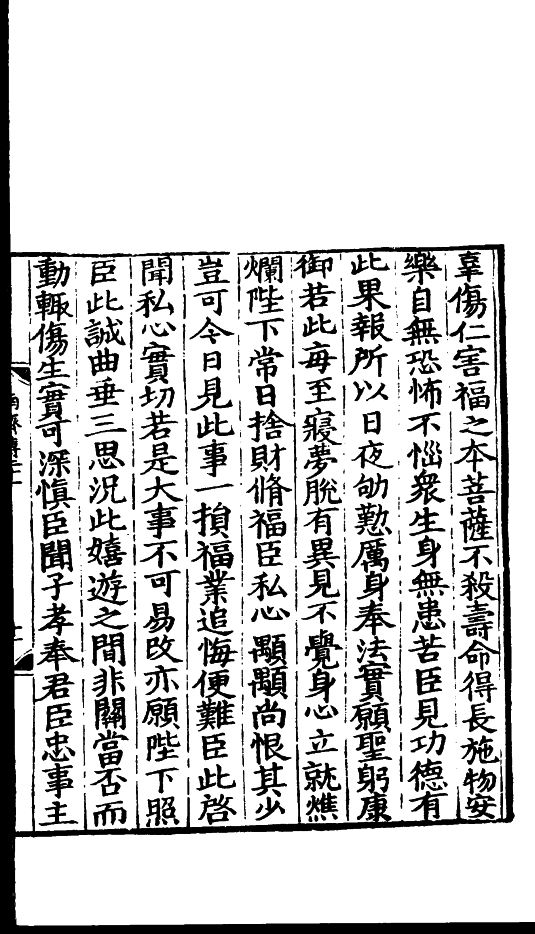 辜傷仁害福之本菩薩不殺壽命得長施物安
樂自無恐怖不惱衆生身無患苦臣見功德有
此果報所以日夜劬懃厲身奉法實願聖躬康
御若此每至寢夢脫有異見不覺身心立就燋
爛陛下常日捨財脩福臣私心顒顒尚恨其少
豈可今日見此事一損福業追悔便難臣此啓
聞私心實切若是大事不可易改亦願陛下照
臣此誠曲垂三思況此嬉遊之間非關當否而
動輒傷生實可深慎臣聞子孝奉君臣忠事主